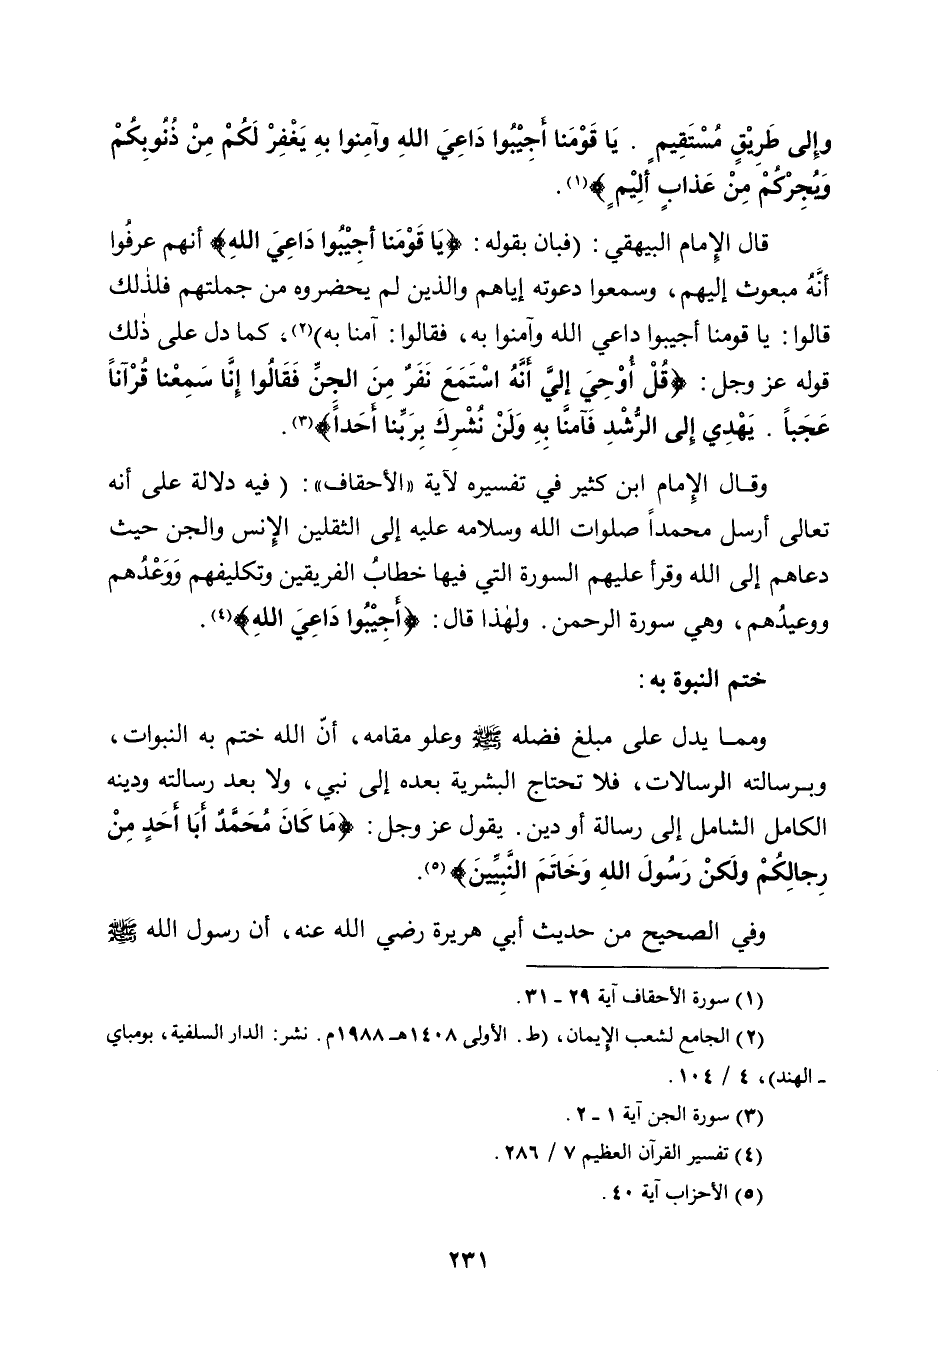 وإلى طَرِيْقٍ مُسْتَقِيمٍ . يَا قَوْمَنا أَجِيْبُوا دَاعِيَ اللهِ وآمِنوا بهِ يَغْفِرْ لَكُمْ مِنْ ذُنُوبِكُمْ
وَيُجِرْكُمْ مِنْ عَذابٍ ألِيْمٍ ﴾(١).
قال الإمام البيهقي : (فبان بقوله : ﴿يَا قَوْمَنا أجِيْبُوا دَاعِيَ اللهِ﴾ أنهم عرفُوا
أنَّهُ مبعوث إليهم، وسمعوا دعوته إياهم والذين لم يحضروه من جملتهم فلذٰلك
قالوا : يا قومنا أجيبوا داعي الله وآمنوا به، فقالوا : آمنا به)(٢)، كما دل على ذٰلك
قوله عز وجل : ﴿قُلْ أُوْحِيَ إليَّ أَنَّهُ اسْتَمَعَ نَفَرٌ مِنَ الجِنِّ فَقَالُوا إِنَّا سَمِعْنا قُرْآناً
عَجَباً . يَهْدِي إلى الرُّشْدِ فَآمنَّا بِهِ وَلَنْ نُشْرِكَ بِرَبِّنا أَحَداً﴾(٣).
وقـال الإمام ابن كثير في تفسيره لآية «الأحقاف» : ( فيه دلالة على أنه
تعالى أرسل محمداً صلوات الله وسلامه عليه إلى الثقلين الإنس والجن حيث
دعاهم إلى الله وقرأ عليهم السورة التي فيها خطابُ الفريقين وتكليفهم وَوَعْدُهم
ووعيدُهم، وهي سورة الرحمن. ولهٰذا قال : ﴿أَجِيْبُوا دَاعِيَ اللهِ﴾(٤).
ختم النبوة به :
وممـا يدل على مبلغ فضله ﷺ وعلو مقامه، أنّ الله ختم به النبوات،
وبـرسالته الرسالات، فلا تحتاج البشرية بعده إلى نبي، ولا بعد رسالته ودينه
الكامل الشامل إلى رسالة أو دين. يقول عز وجل : ﴿مَا كَانَ مُحَمَّدٌ أَبَا أَحَدٍ مِنْ
رِجالِكُمْ ولَكنْ رَسُولَ اللهِ وَخَاتَمَ النَّبِيِّينَ﴾(٥).
وفي الصحيح من حديث أبي هريرة رضي الله عنه، أن رسول الله ﷺ
(١) سورة الأحقاف آية ٢٩ - ٣١.
(٢) الجامع لشعب الإيمان، (ط. الأولى ١٤٠٨هـ ١٩٨٨م. نشر: الدار السلفية، بومباي
- الهند)، ٤ / ١٠٤.
(٣) سورة الجن آية ١ - ٢.
(٤) تفسير القرآن العظيم ٧ / ٢٨٦.
(٥) الأحزاب آية ٤٠.
٢٣١